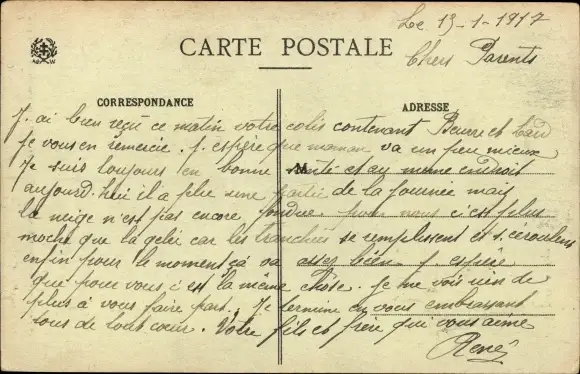 Le 13-1-1917
CARTE POSTALE
Chers Parents
CORRESPONDANCE
ADRESSE
J'ai bien reçu ce matin votre colis contenant Beurre et Lard
je vous en remercie. J'espère que maman va un peu mieux
Je suis toujours en bonne santé et au même endroit
M
aujourd'hui il a plu une partie de la journée mais
la neige n'est pas encore fondue pour nous c'est plus
moche que la gelée car les tranchées se remplissent et s'écroulent
enfin pour le moment ça va assez bien j'espère
que pour vous c'est la même chose. Je ne vois rien de
plus à vous faire part. Je termine en vous embrassant
tous de tout cœur. Votre fils et frère qui vous aime
René